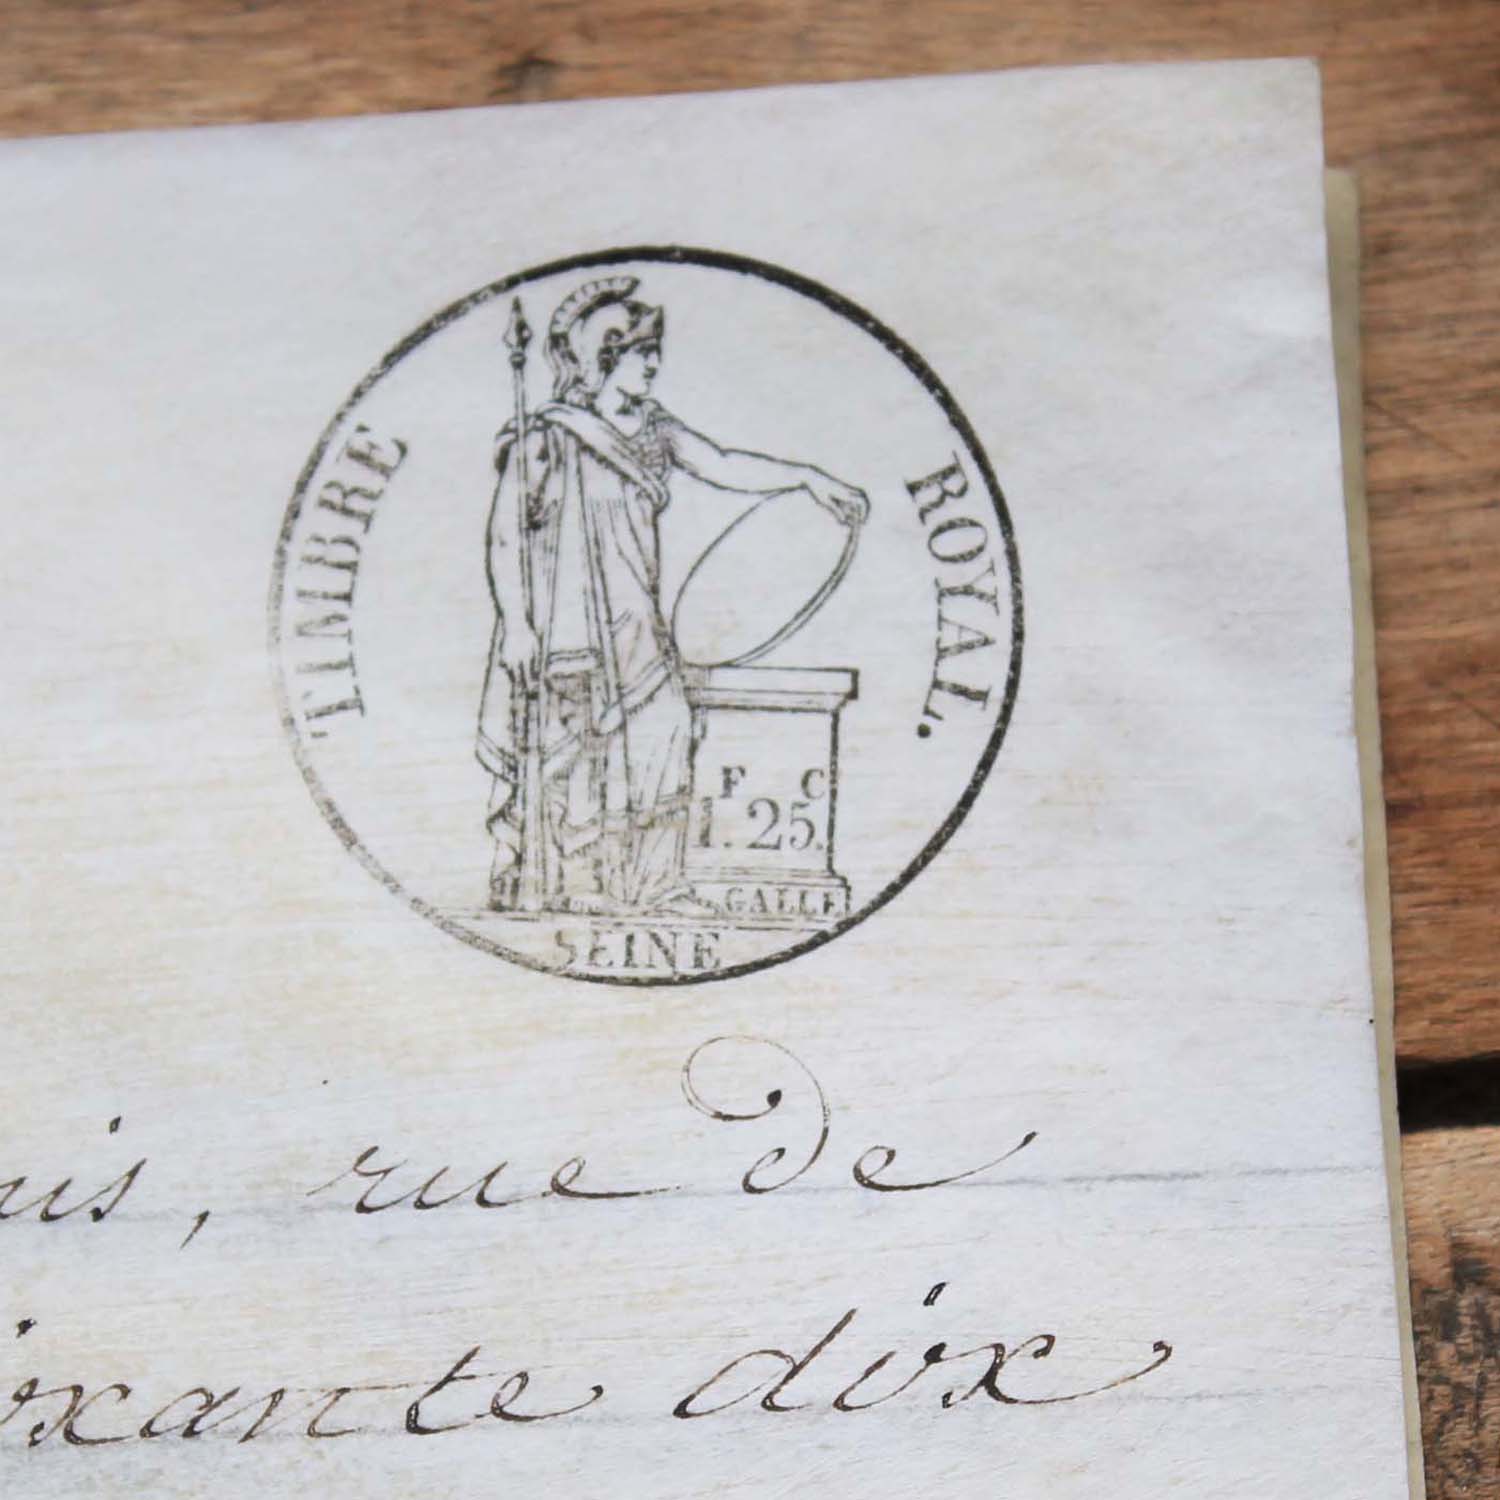 TIMBRE ROYAL.
F C
1. 25.
GALLE
SEINE
, rue de
dix